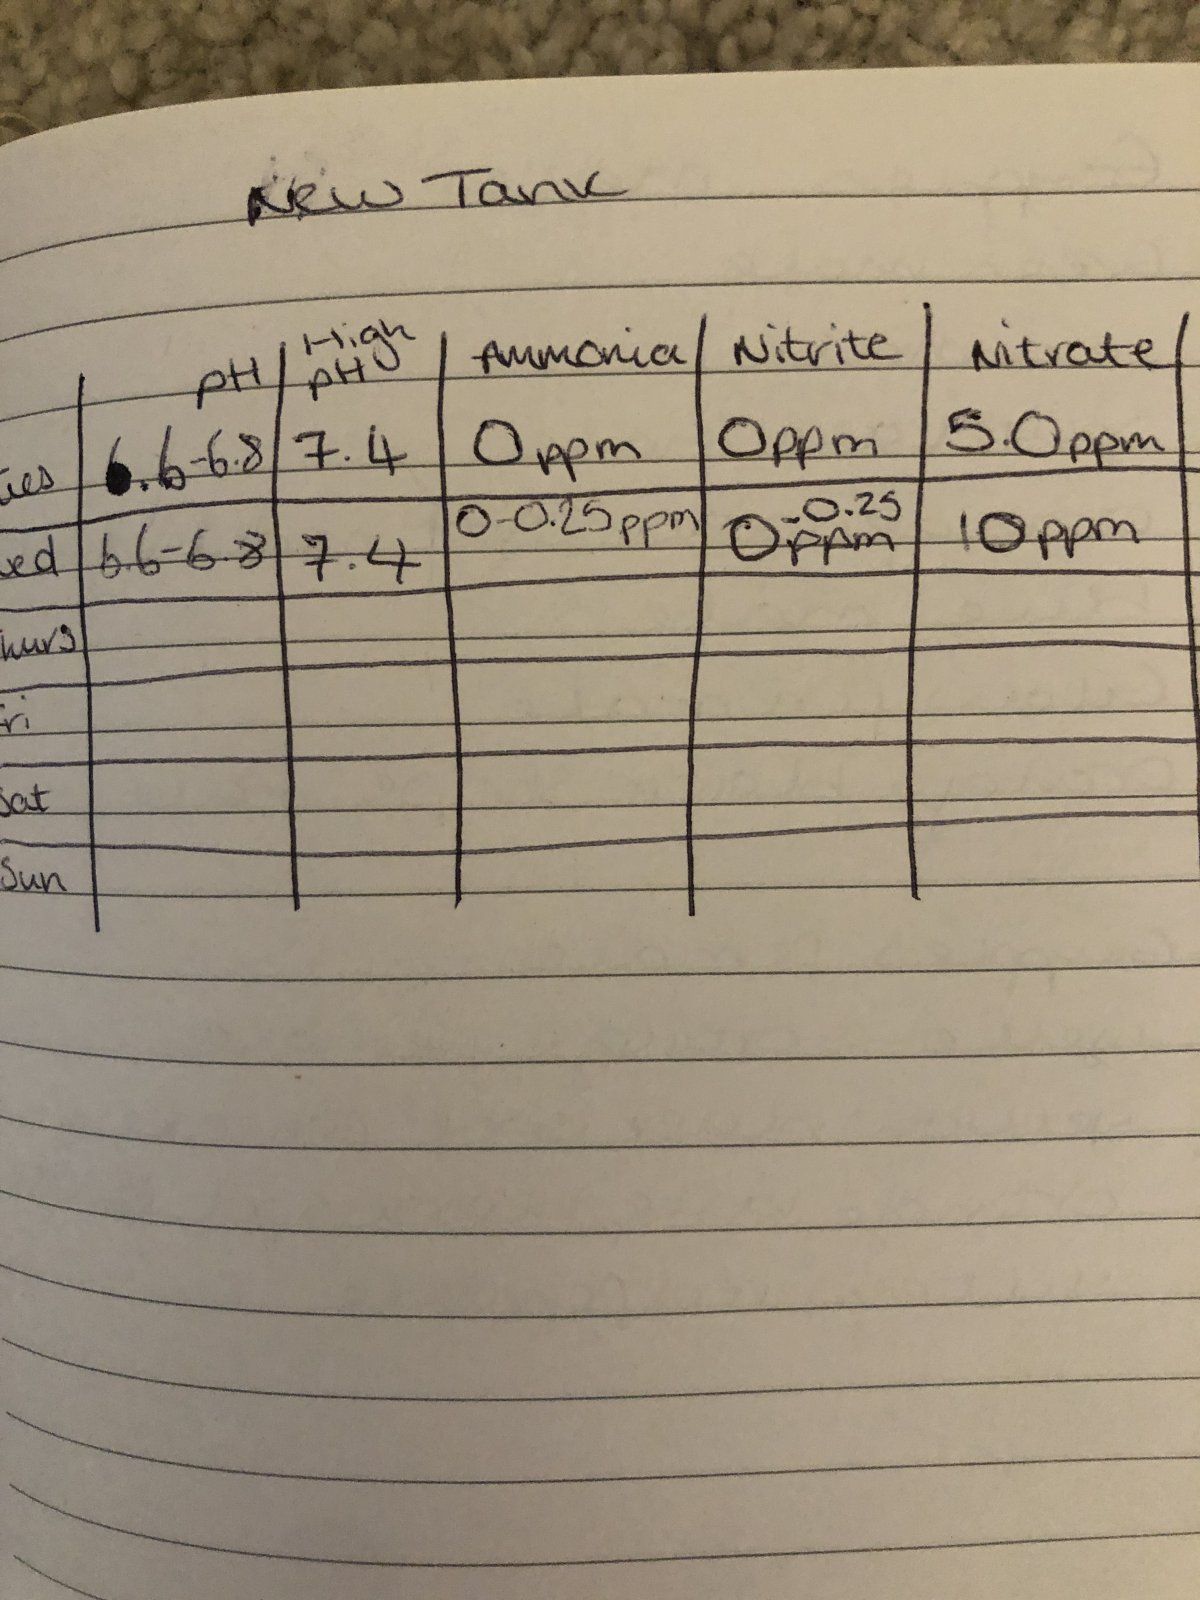 New Tank
pH High pH Ammonia Nitrite Nitrate
ues 6.6-6.8 7.4 0ppm 0ppm 5.0ppm
wed 6.6-6.8 7.4 0-0.25ppm 0-0.25ppm 10ppm
hurs
Fri
Sat
Sun